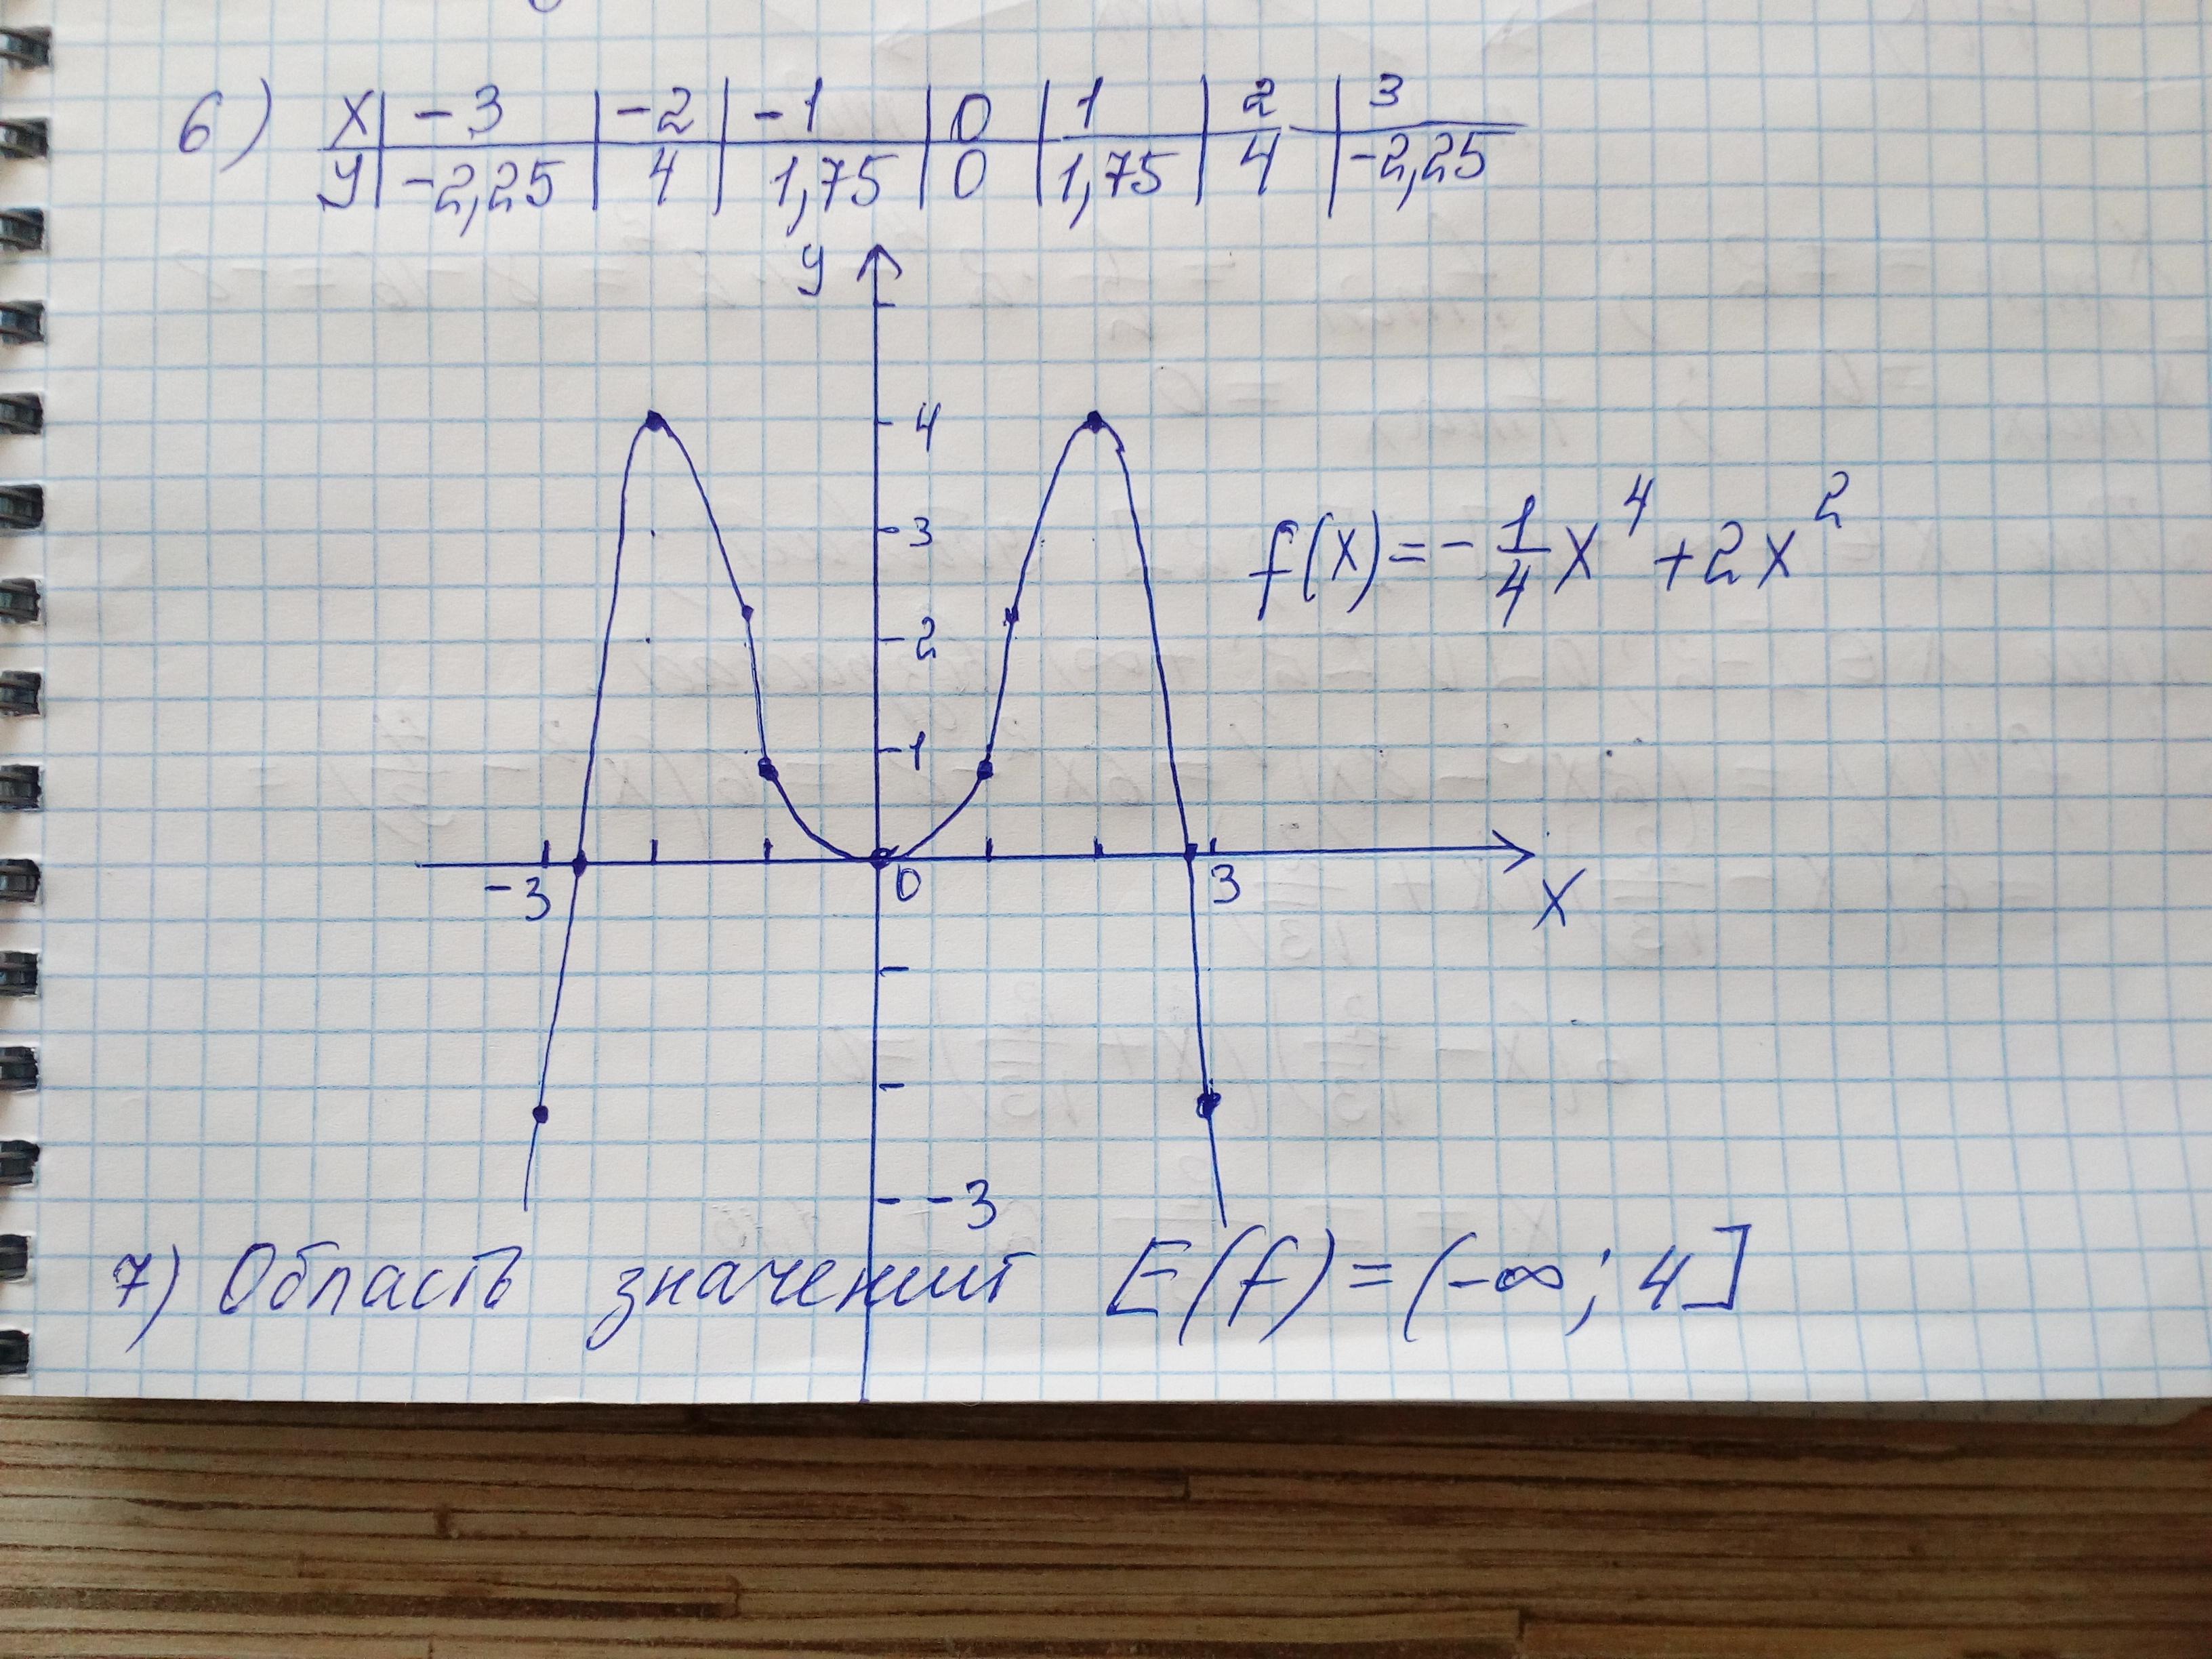 6) x | -3 | -2 | -1 | 0 | 1 | 2 | 3
y | -2,25 | 4 | 1,75 | 0 | 1,75 | 4 | -2,25
y
4
3
f(x) = - 1/4 x⁴ + 2x²
2
1
-3 0 3
x
-3
7) Область значений E(f) = (-∞; 4]